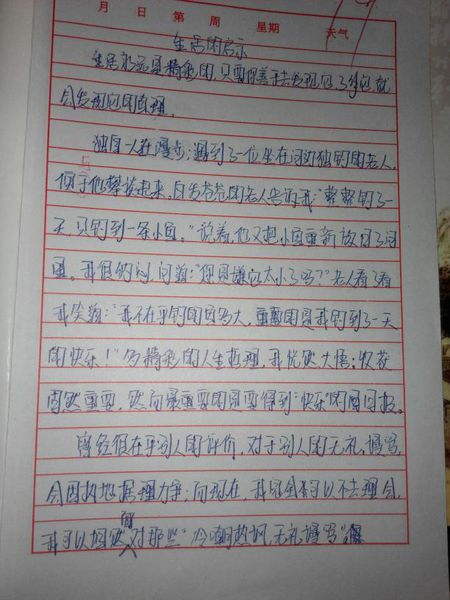 月 日 第 周 星期 天气
生活的启示
生活永远是精彩的,只要你善于去发现它,了解它,就
会发现它的真理。
独自一人在漫步,遇到了一位坐在河边独钓的老人,
便于他攀谈起来,白发苍苍的老人告诉我“整整钓了一
天,只钓到一条小鱼。”说着,他又把小鱼重新放回了河
里。我很纳闷,问道:“你是嫌它太小了吗?”老人看了看
我笑道:“我不在乎钓的鱼多大,重要的是我钓到了一天
的快乐!”多精彩的人生哲理,我恍然大悟:收获
固然重要,然而最重要的是要得到“快乐”的回报。
曾经很在乎别人的评价,对于别人的无礼,谩骂,
会固执地据理力争;而现在,我完全可以不去理会,
我可以坦然面对那些“冷嘲热讽,无礼谩骂”